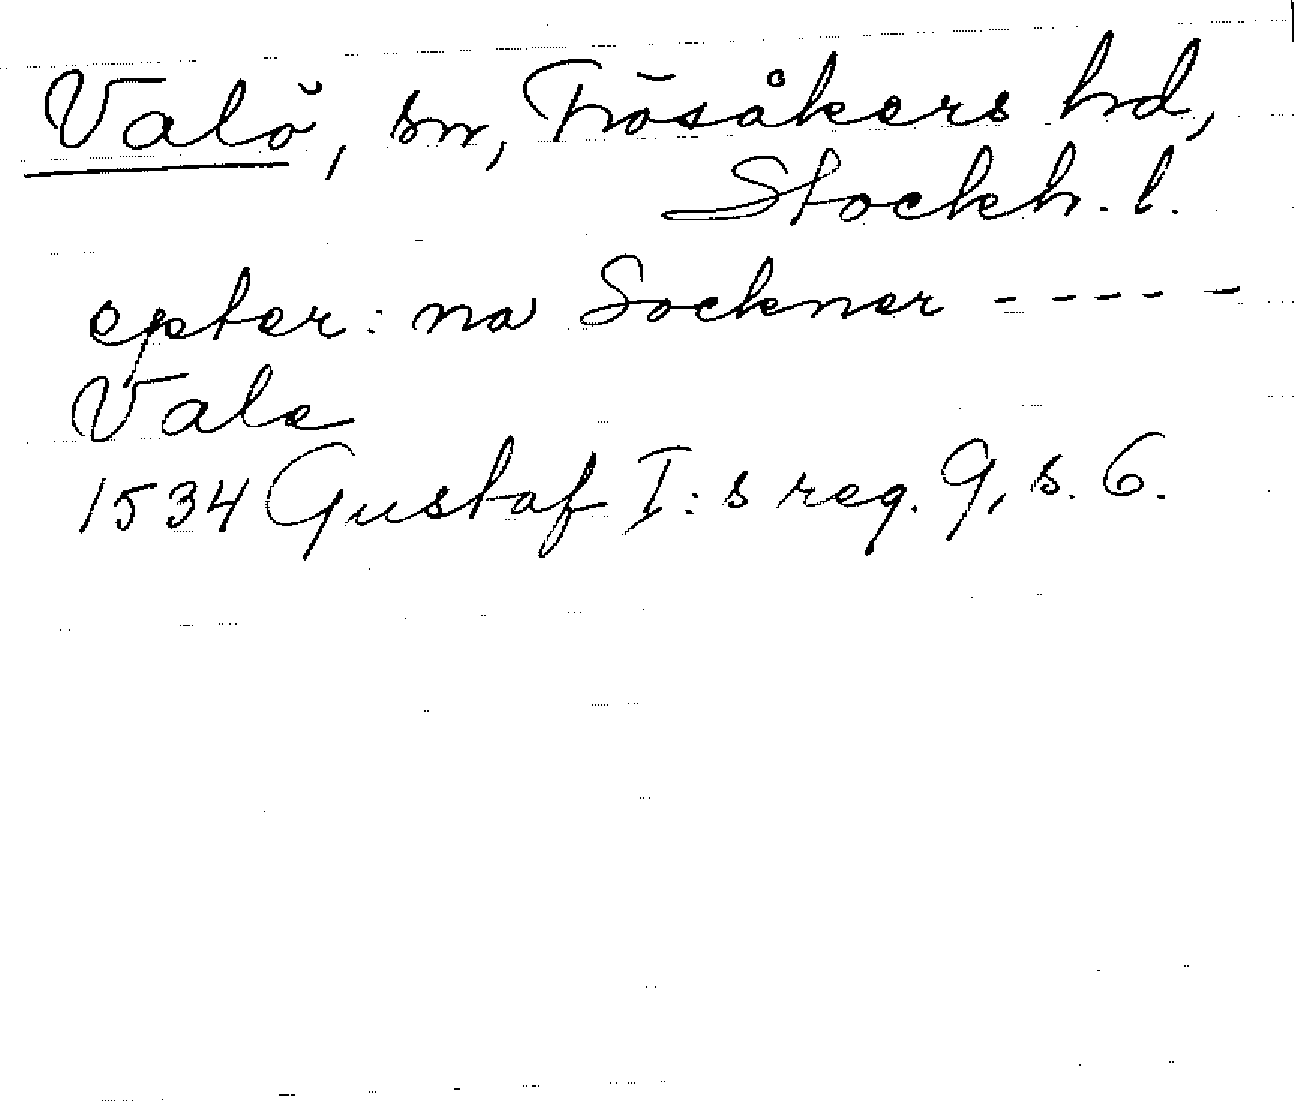 Valö, sn, Frösåkers hd,
Stockh. l.
epter: na Sockner -----
Vale
1534 Gustaf I:s reg. 9, s. 6.